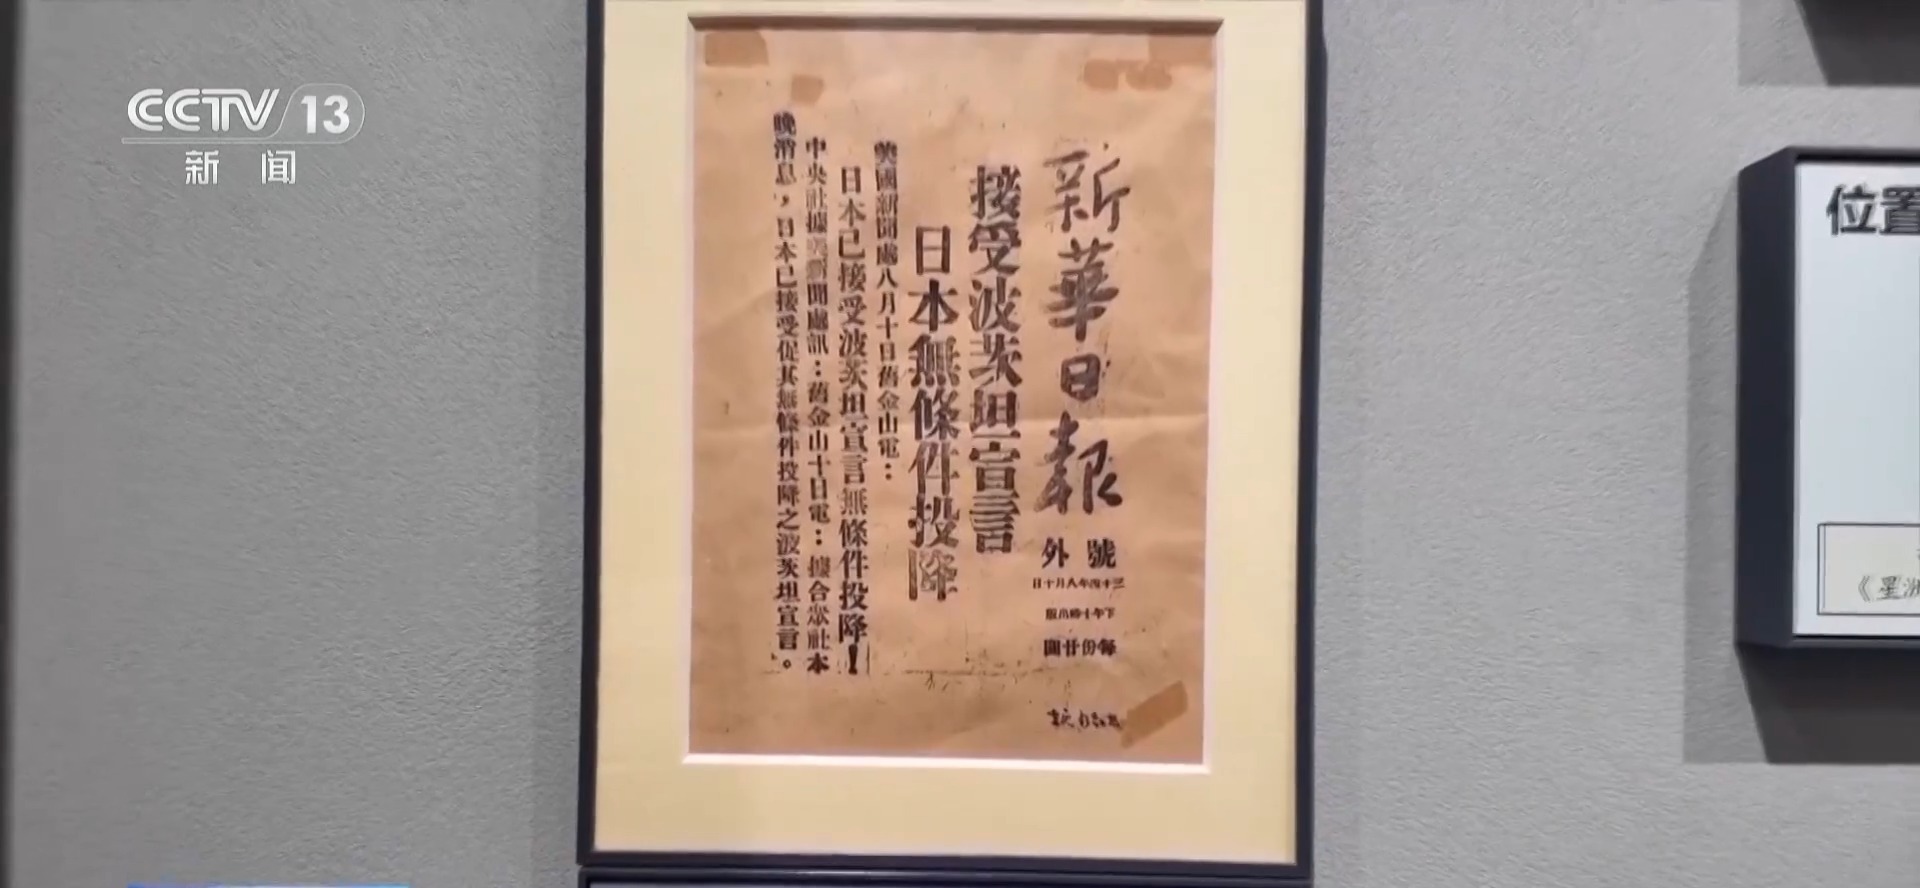 CCTV 13
新闻
新華日報
號外
三十四年八月十日
下午十時出版
每份廿圓
接受波茨坦宣言
日本無條件投降
美國新聞處八月十日舊金山電：
日本已接受波茨坦宣言無條件投降！
中央社據美新聞處訊：舊金山十日電：據合眾社本
晚消息，日本已接受促其無條件投降之波茨坦宣言。
位置
《星洲